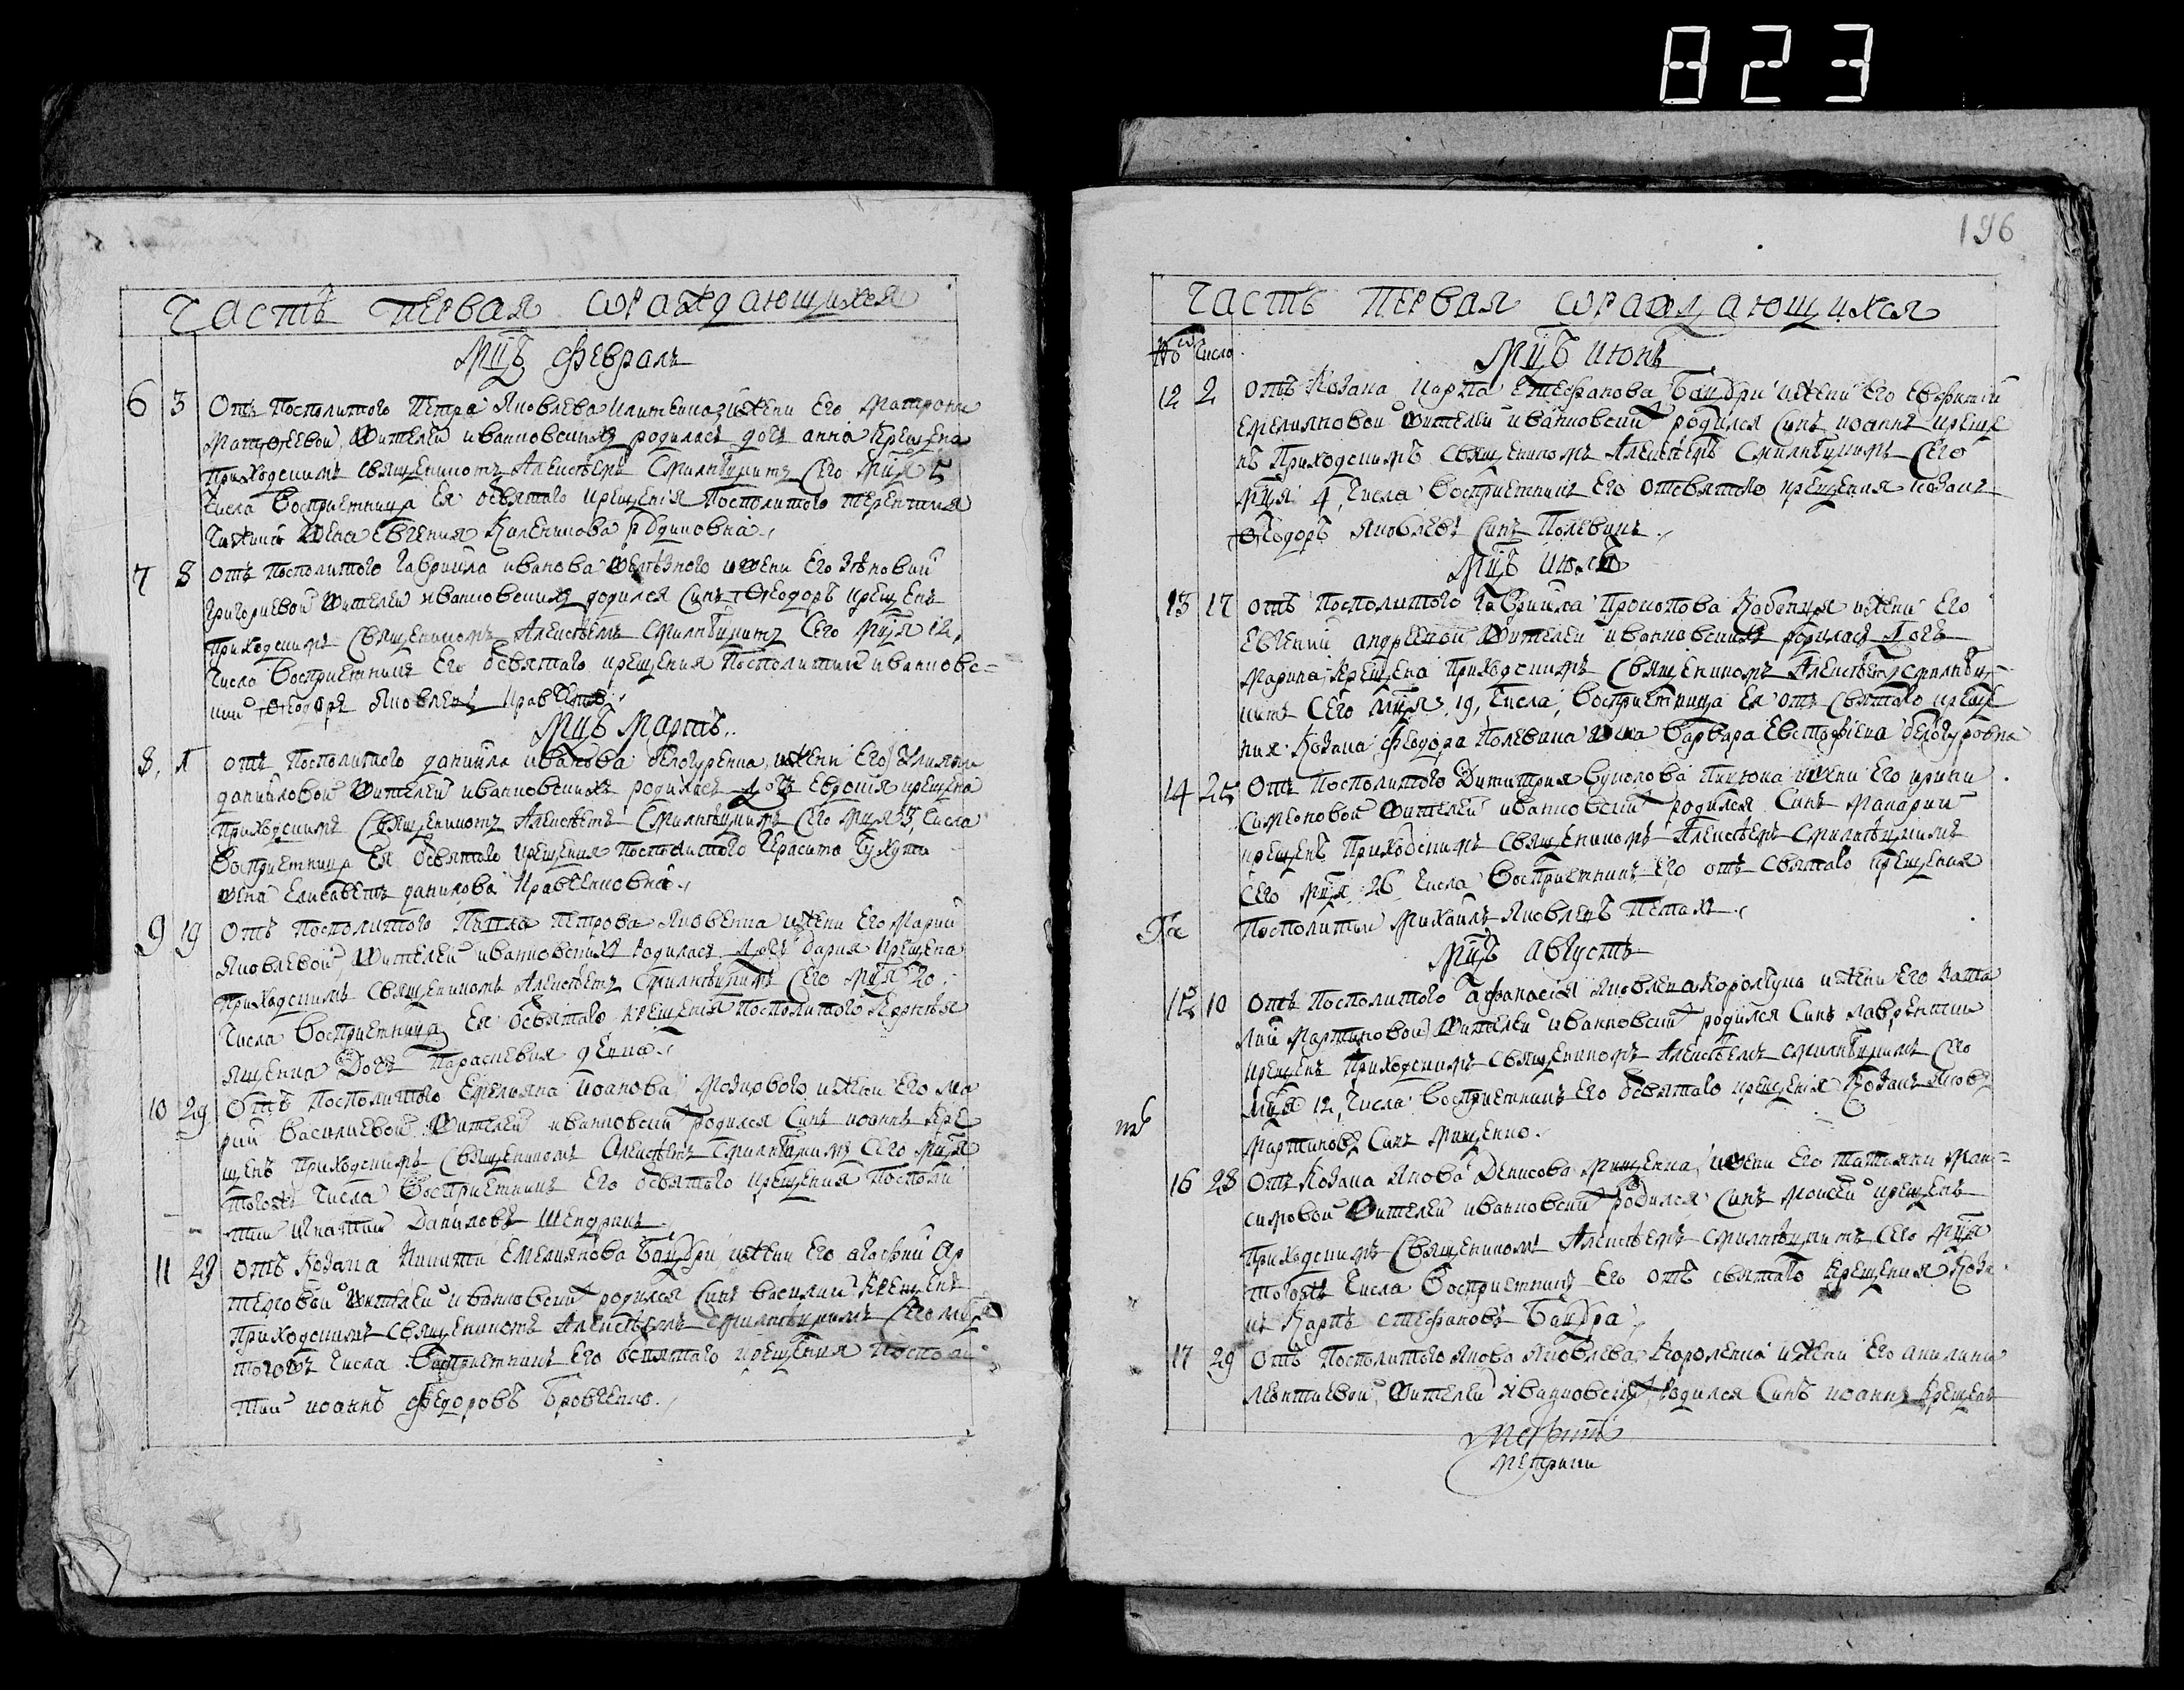 823
Часть первая ѡраждающихся
Мцъ февраль
6 3 Отъ посполитого Петра Яковлева жени его Матрони
Матѳеевой жителей ивановскихъ родилась дочь анна крещена
приходскимъ священикомъ Алексѣемъ Смилнѣцкимъ сего мця 5
числа восприемница ея ѡсвятаго крещения посполитого терентия
жена евгения
7 8 Отъ посполитого гавриила иванова желѣзного и жени его
григориевой жителей ивановскихъ родился синъ ѳеодоръ крещенъ
приходскимъ священикомъ Алексѣемъ Смилнѣцкимъ сего мця 12,
числа восприемникъ его ѡсвятаго крещения посполитий ивановс-
кий ѳеодоръ Яковлевъ
Мцъ Мартъ.
8, 1 отъ посполитого даниила иванова белогуренка, и жени его Улияни
данииловой жителей ивановскихъ родилась дочъ евдокия крещена
приходскимъ священикомъ Алексѣемъ Смилнѣцкимъ сего мця 3, числа
восприемница ея ѡсвятаго крещения посполитого герасима
жена елисаветъ данилова кравченковна.
9 19 Отъ посполитого петрова Яковенка и жени его Марии
Яковлевой, жителей ивановскихъ родилася дочъ дария крещена
приходскимъ священикомъ Алексѣемъ Смилнѣцкимъ сего мця 20.
числа восприемница ея ѡсвятаго крещения посполитого
ященка дочъ Параскевия
10 29 Отъ посполитого емелияна иоанова Мозырового и жени его Ма
рии василиевой жителей ивановский родился синъ иоаннъ кре
щенъ приходскимъ священикомъ Алексѣемъ Смилнѣцкимъ сего мця
тогожъ числа восприемникъ его ѡсвятаго крещения посполи
тий игнатий даниловъ шендрикъ
11 29 отъ козака никити емелиянова бандри, и жени его агафии ар
темовой жителей ивановский родился синъ василий крещенъ
приходскимъ священикомъ Алексѣемъ Смилнѣцкимъ сего мця
тогожъ числа восприемникъ его ѡсвятаго крещения посполи
тий иоаннъ федоровъ бровченко.
196
Часть первая ѡраждающихся
число
Мцъ июнь
12 2 отъ козака карпа стефанова бандри и жени его евфимии
емелияновой жителей ивановский родился синъ иоаннъ креще
нъ приходскимъ священикомъ Алексѣемъ Смилнѣцкимъ сего
мця 4, числа восприемникъ его отсвятаго крещения козакъ
ѳеодоръ яковлевъ синъ полевикъ.
Мцъ июль
13 17 отъ посполитого гавриила прокопова и жени его
евгении андреевой жителей ивановскихъ родилася дочъ
марина, крещена приходскимъ священикомъ Алексѣемъ Смилнѣц-
кимъ сего мця 19, числа, восприемница ея отъ святаго креще
ния козака феодора полевика жена варвара евстафиева белогуровна
14 25 Отъ посполитого димитрия и жени его ирини
симеоновой жителей ивановский родился синъ макарий
крещенъ приходскимъ священикомъ Алексѣемъ Смилнѣцкимъ
сего мця 26 числа восприемникъ его отъ святаго крещения
посполитий михаилъ яковлевъ петахъ.
Мцъ августъ
15 10 Отъ посполитого афанасия яковлева и жени его ната
лии мартиновой, жителей ивановский родился синъ лаврентий
крещенъ приходскимъ священикомъ Алексѣемъ Смилнѣцкимъ сего
мця 12, числа восприемникъ его ѡсвятаго крещения козакъ яковъ
мартиновъ синъ мищенко.
16 28 Отъ козака якова денисова мищенка, и жени его татияни мак-
симовой жителей ивановский родился синъ моисей крещенъ
приходскимъ священикомъ Алексѣемъ Смилнѣцкимъ сего мця
тогожъ числа восприемникъ его отъ святаго крещения коза
къ карпъ стефановъ бандра.
17 29 Отъ посполитого якова яковлева короленка и жени его акилини
леонтиевой, жителей ивановский родился синъ иоаннъ крещенъ
метрики